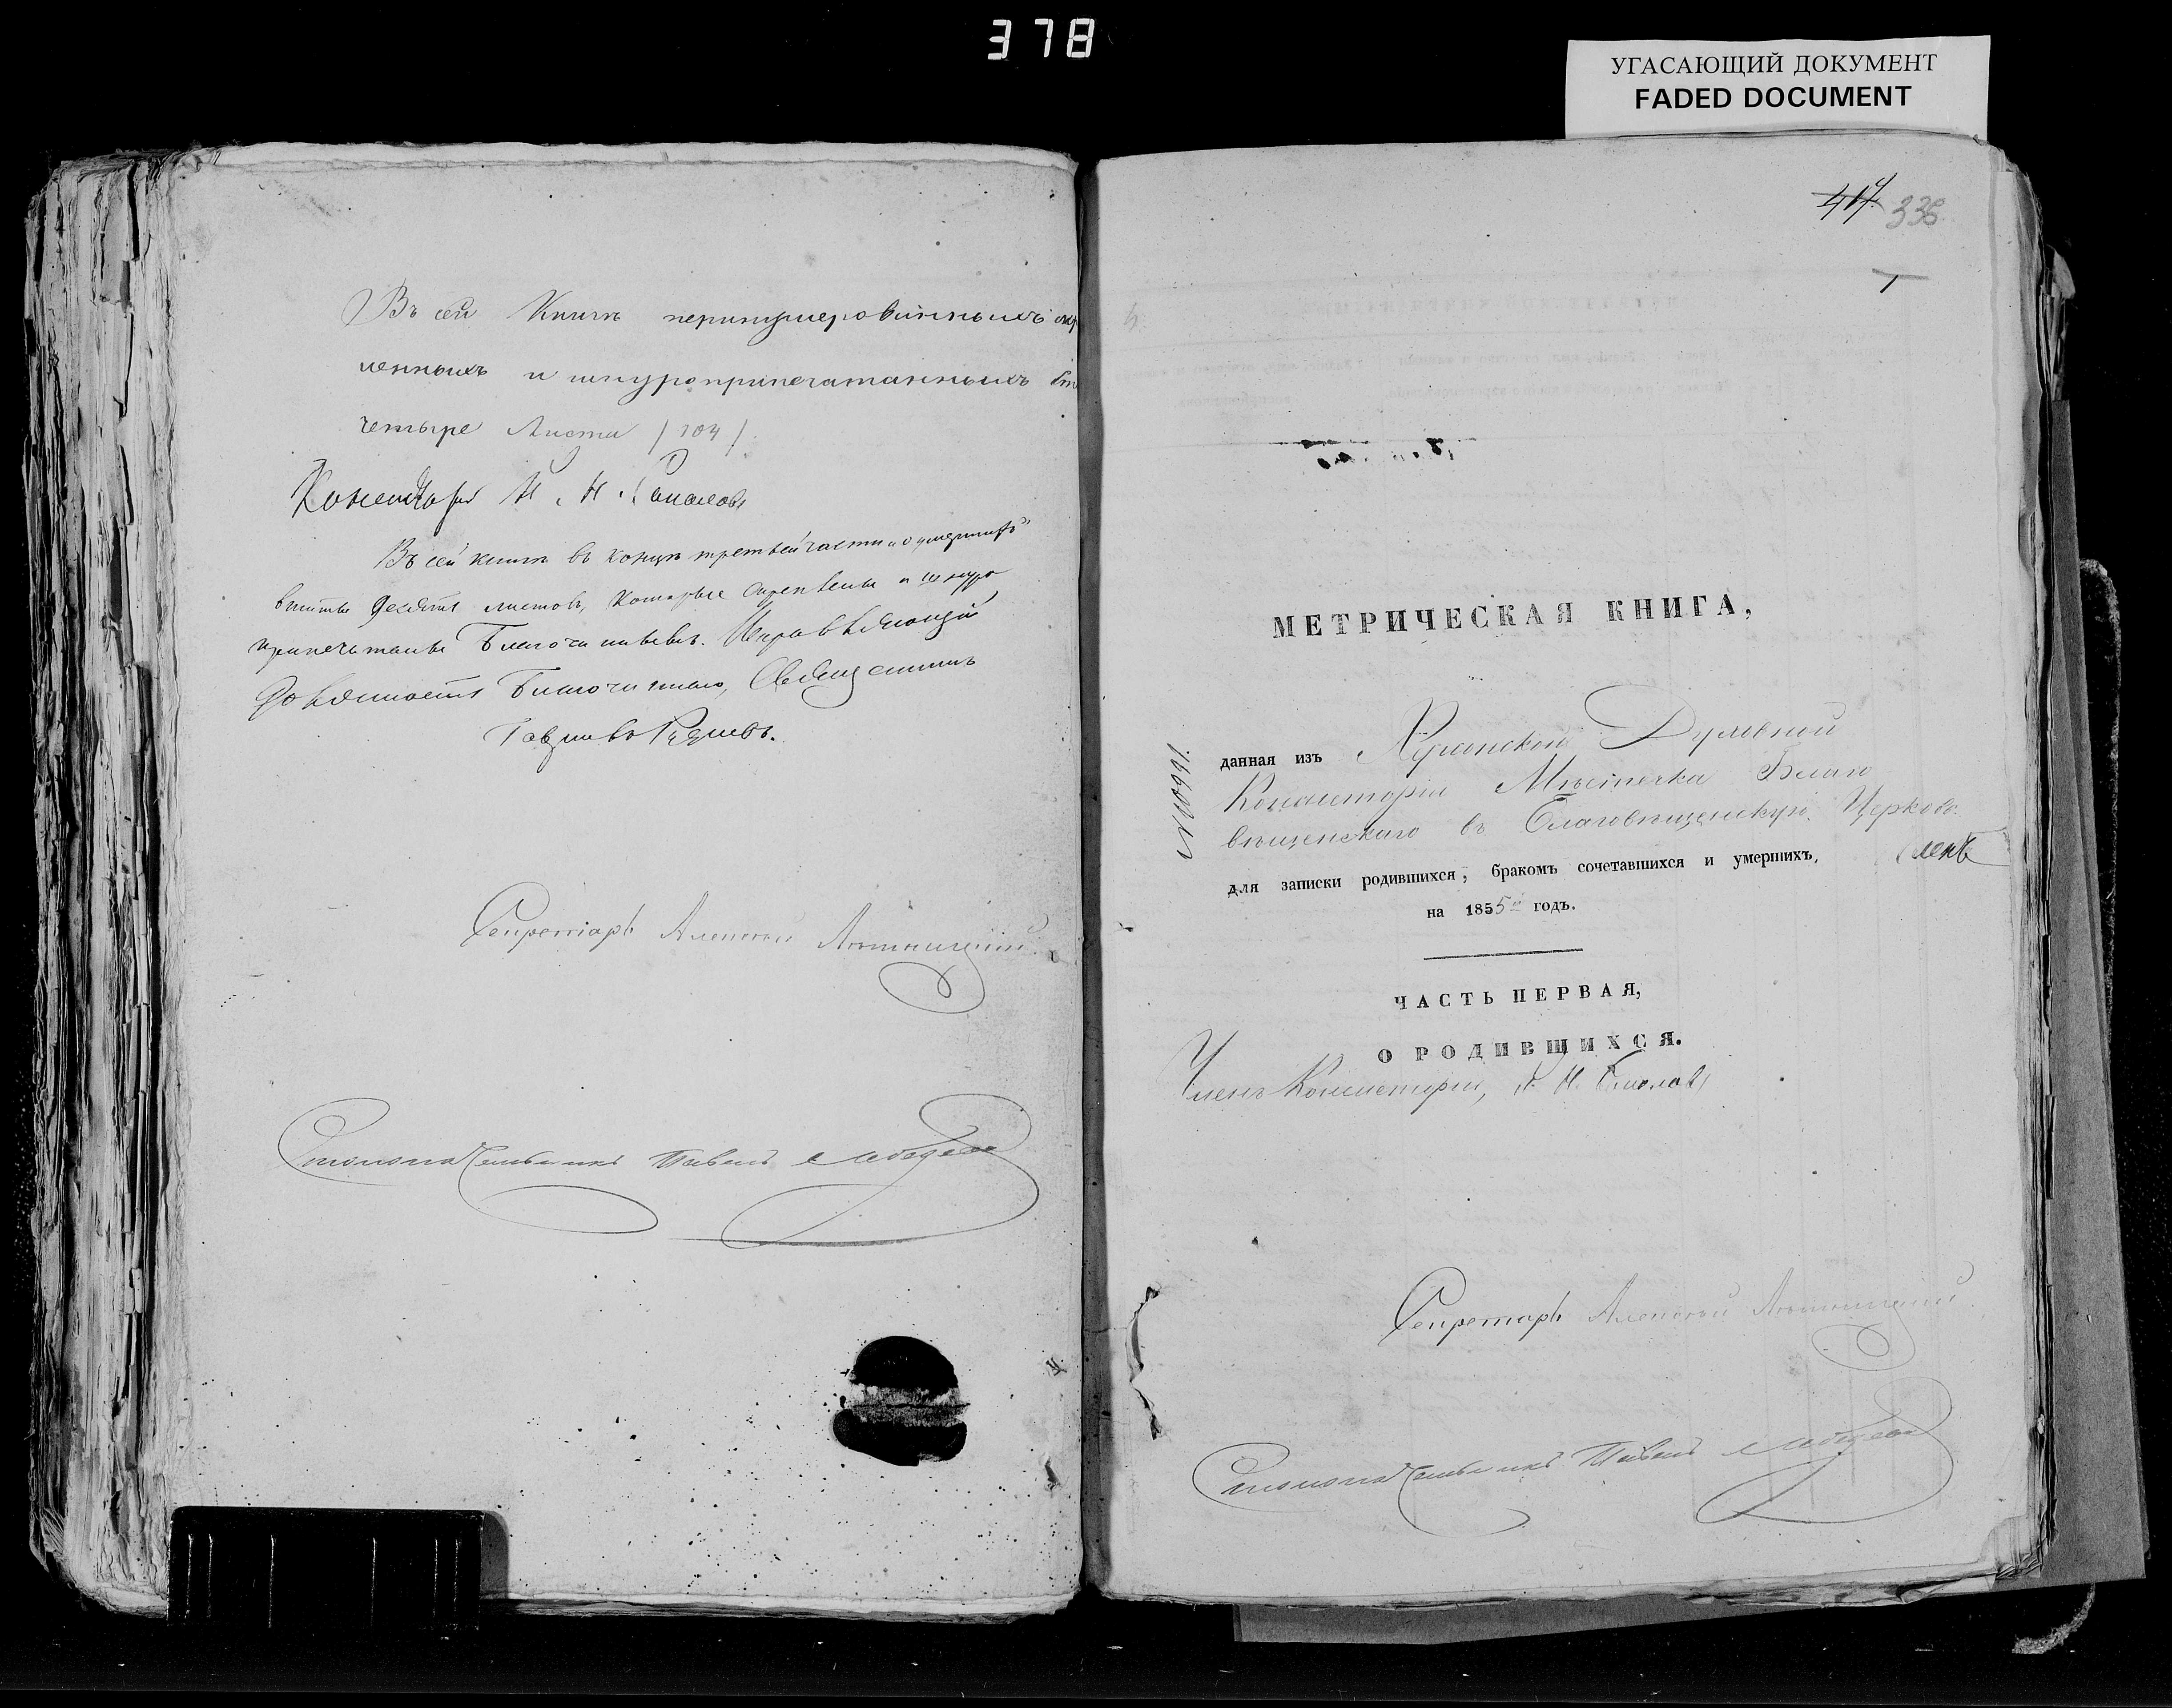 378
УГАСАЮЩИЙ ДОКУМЕНТ
FADED DOCUMENT
Въ сей Книгѣ перенумерованныхъ скр
ленныхъ и шнуроприпечатанныхъ сто
четыре Листа /104/
Въ сей книгѣ въ концѣ третьей части „о умершихъ“
вшиты десять листовъ, которые скрѣплены и шнуро
припечатаны Благочиннымъ. Исправляющій
должность Благочиннаго, Священникъ
Секретарь Алексѣй
Столоначальникъ Павелъ Лебедевъ
414 338
1
МЕТРИЧЕСКАЯ КНИГА,
данная изъ Херсонской Духовной
Консисторіи Мѣстечка Благо
вѣщенскаго въ Благовѣщенскую Церковь
для записки родившихся, бракомъ сочетавшихся и умершихъ,
на 1855й годъ.
ЧАСТЬ ПЕРВАЯ,
О РОДИВШИХСЯ.
Членъ Консисторіи,
Секретарь Алексѣй
Столоначальникъ Павелъ Лебедевъ